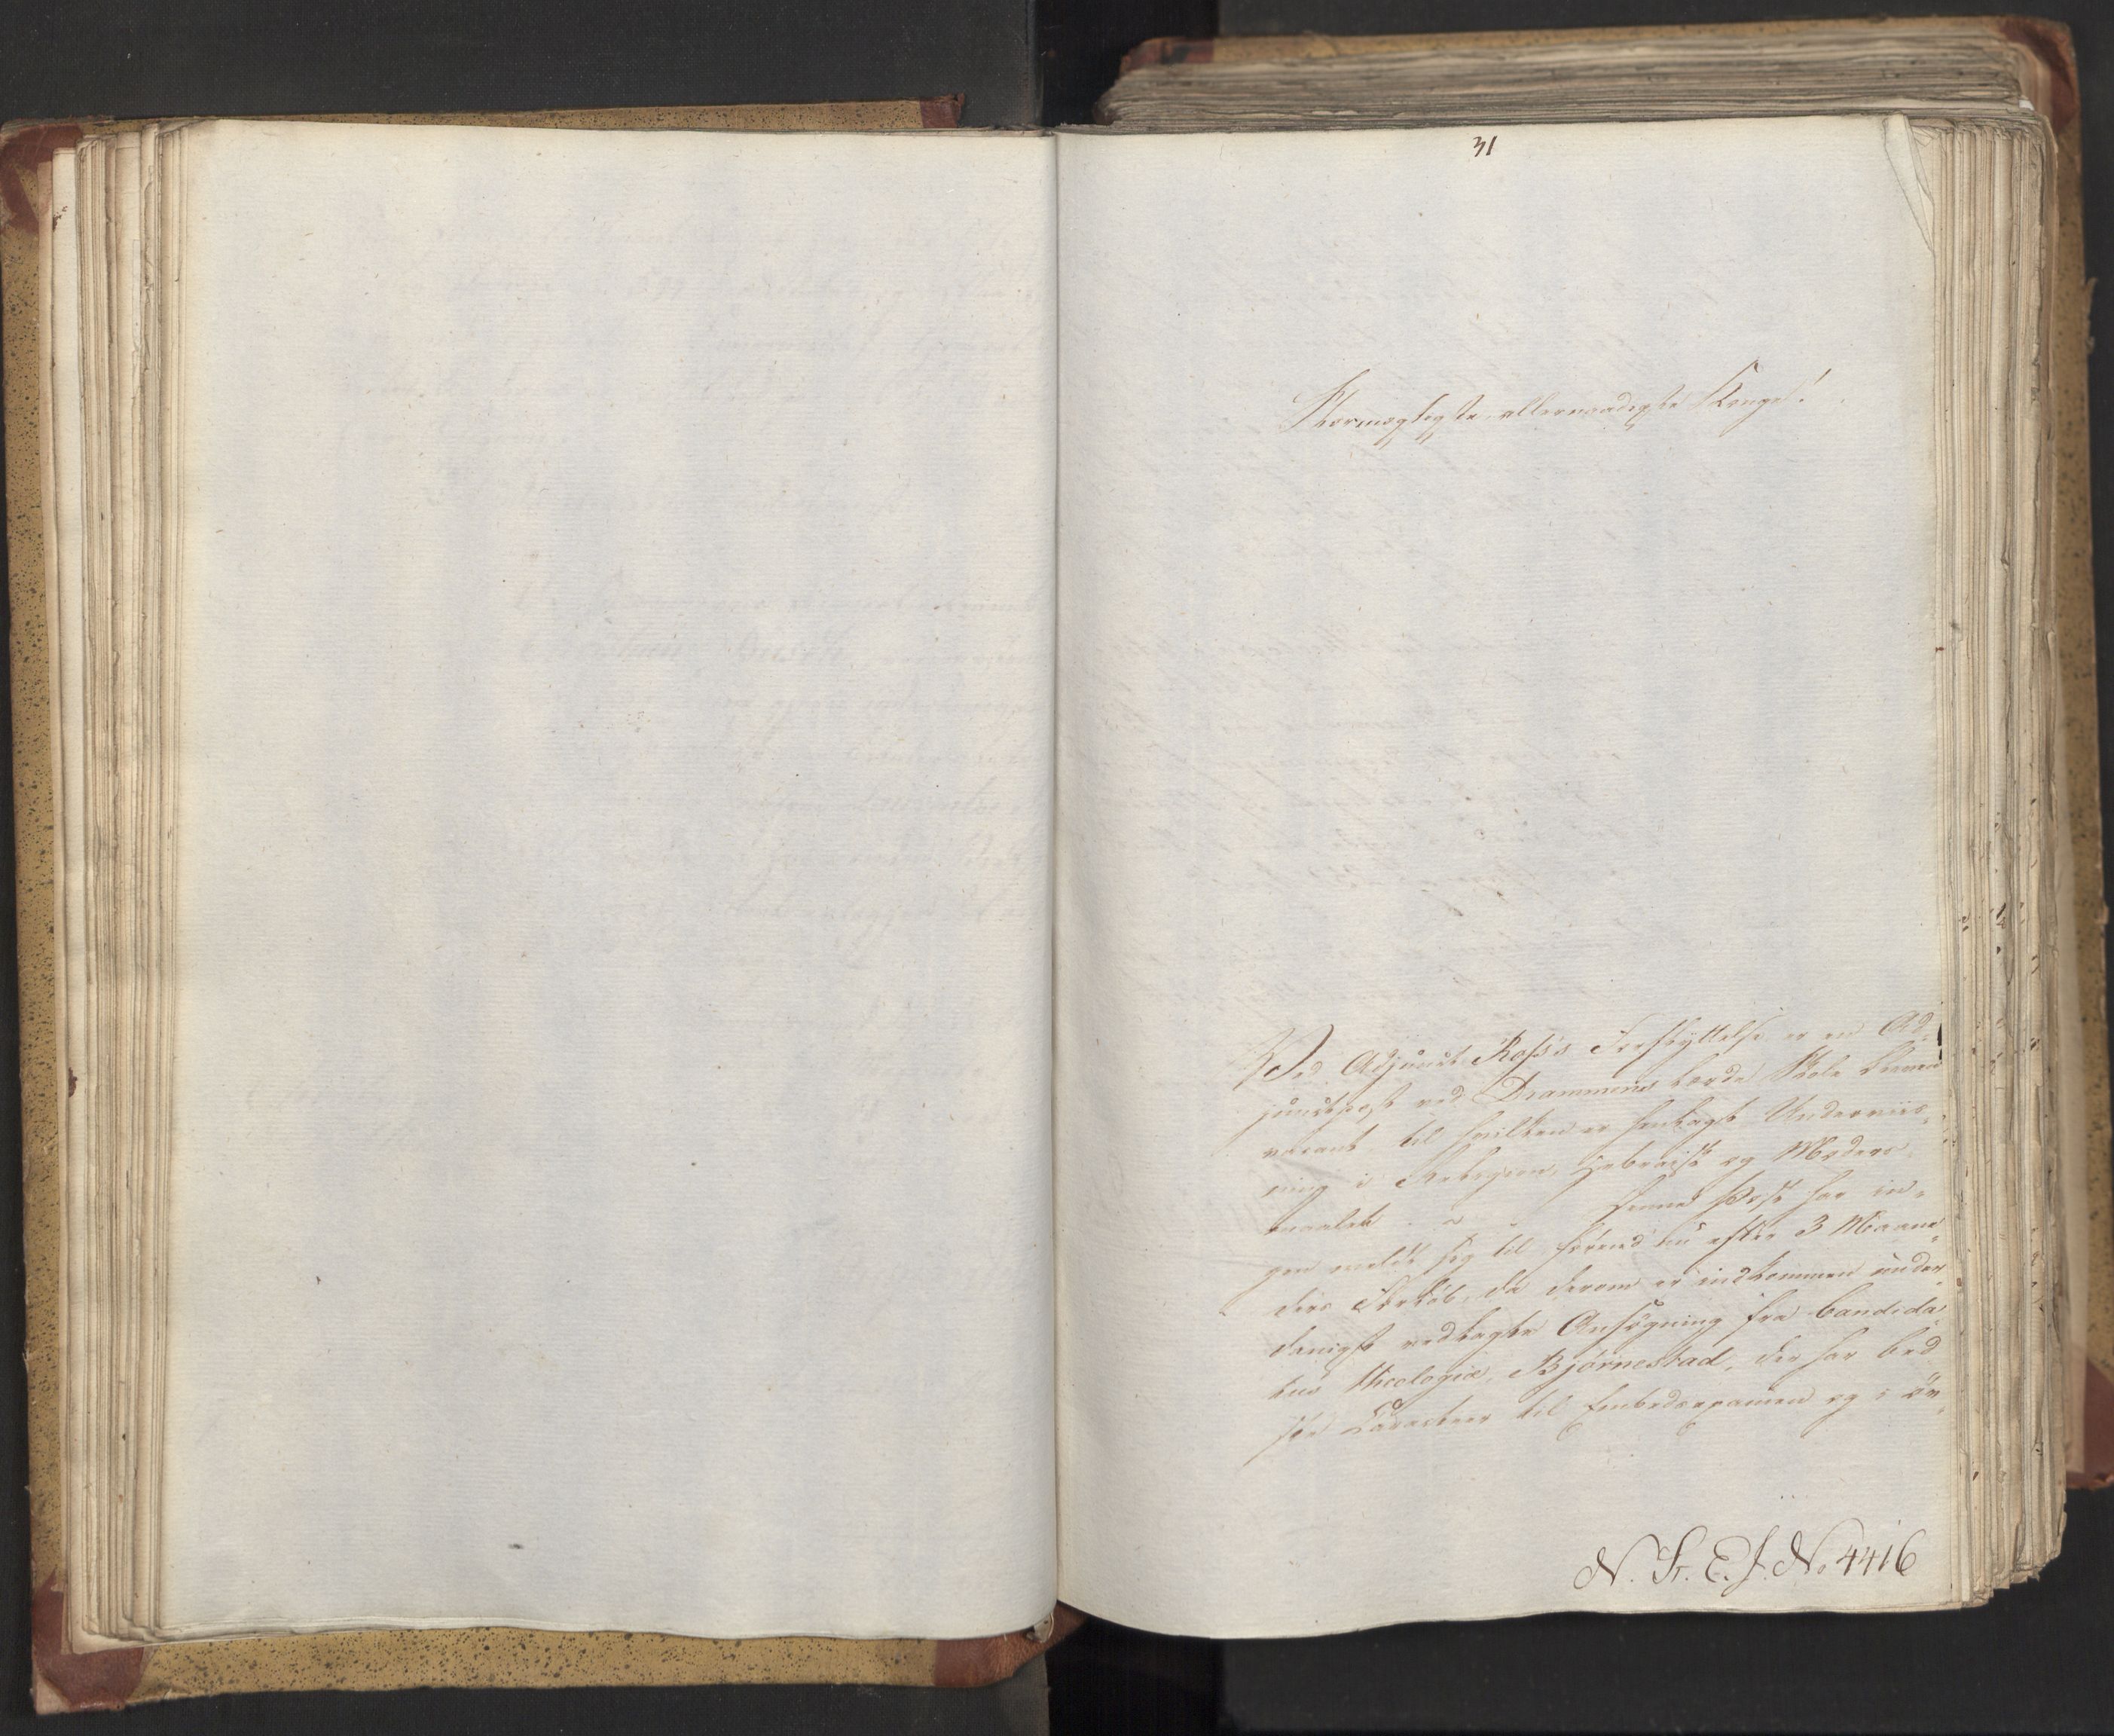 31
Stormægtigste, allernaadigste Konge!
Ved Adjunct Rosss Forflyttelse er en Ad-
junctpost ved Drammens lærde Skole bleven
vacant, til hvilken er henlagt Underviis-
ning i Religion, Hebraisk og Moders-
maalet. Denne Post har in-
gen meldt sig til förend nu efter 3 Maane-
ders Forløb, da derom er indkommen under-
danigst vedlagte Ansøgning fra Candida-
tus theologiæ Bjørnestad, der har bed-
ste Caracteer til Embedsexamen og i öv-
N. St. E. J. No 4416